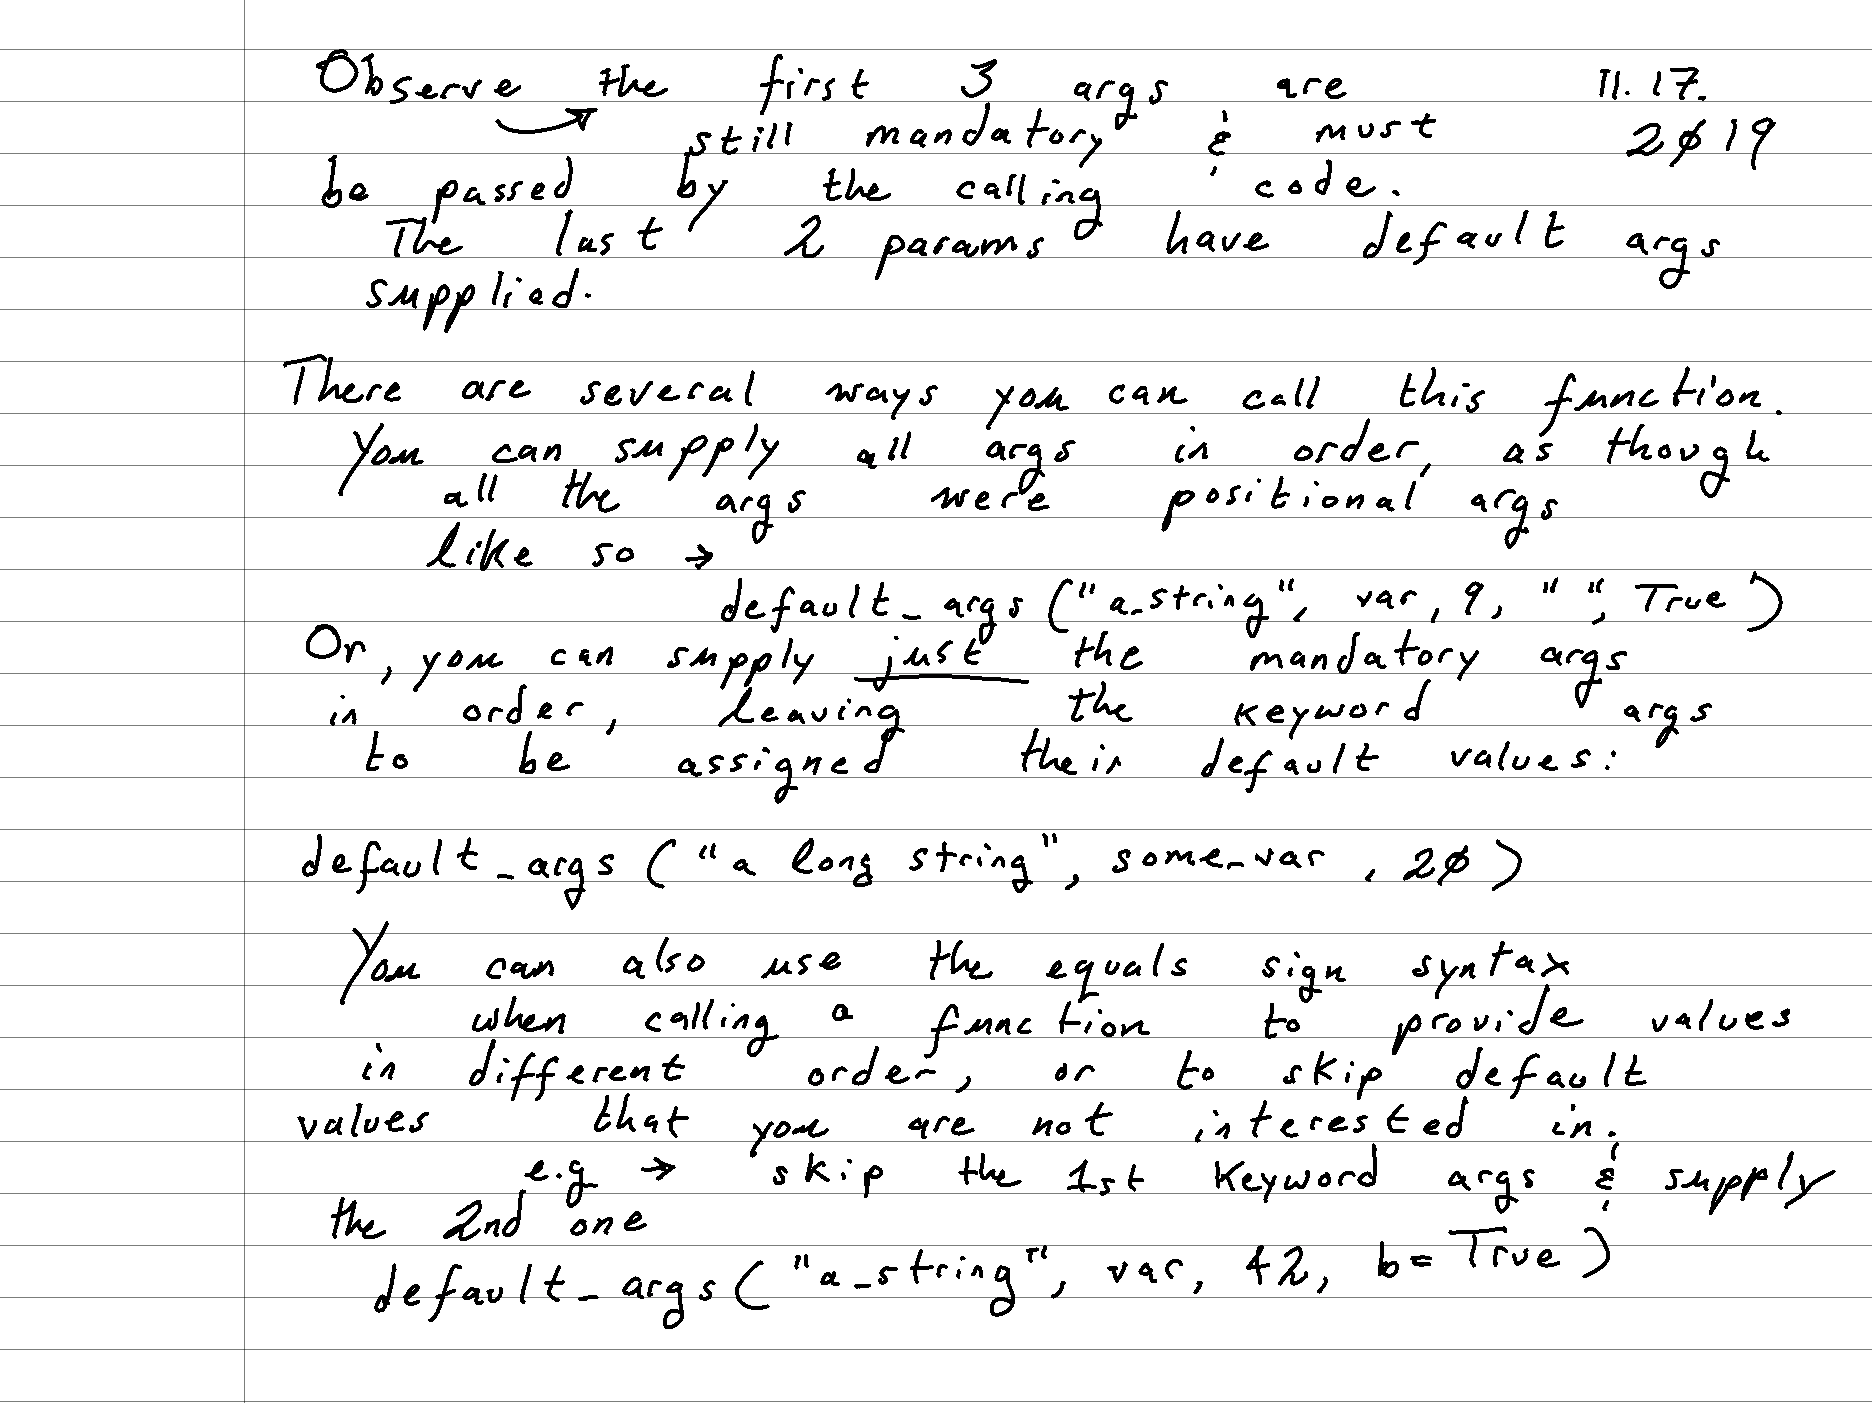 Observe the first 3 args are 11.17.
still mandatory & must 2019
be passed by the calling code.
The last 2 params have default args
supplied.
There are several ways you can call this function.
You can supply all args in order, as though
all the args were positional args
like so →
default_args ("a_string", var, 9, " ", True)
Or, you can supply just the mandatory args
in order, leaving the keyword args
to be assigned their default values:
default_args ("a long string", some_var, 20)
You can also use the equals sign syntax
when calling a function to provide values
in different order, or to skip default
values that you are not interested in.
e.g → skip the 1st keyword args & supply
the 2nd one
default_args ("a_string", var, 42, b= True)